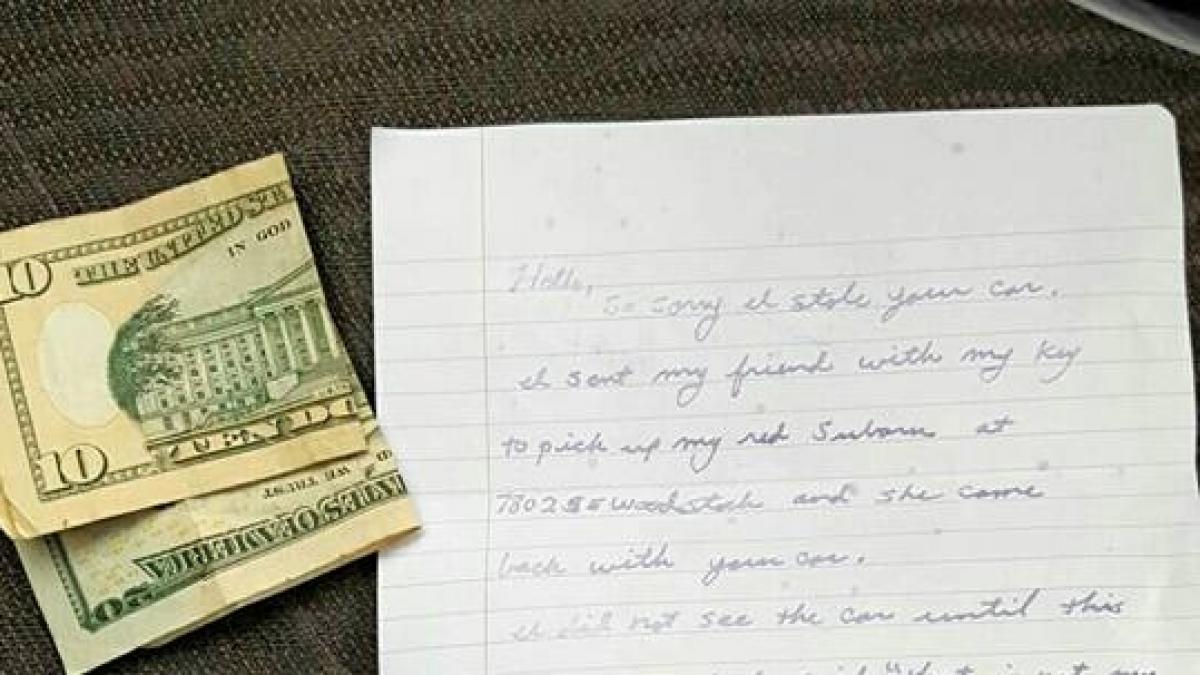 10
THE UNITED STA
IN GOD
10
TES OF AMERICA
20
Hello,
So sorry I stole your car.
I sent my friend with my key
to pick up my red Subaru at
7802 SE Woodstock and she came
back with your car.
I did not see the car until this